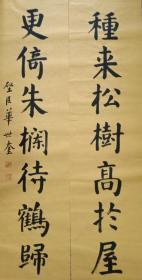 種来松樹高於屋
更倚朱欄待鶴歸
華世奎